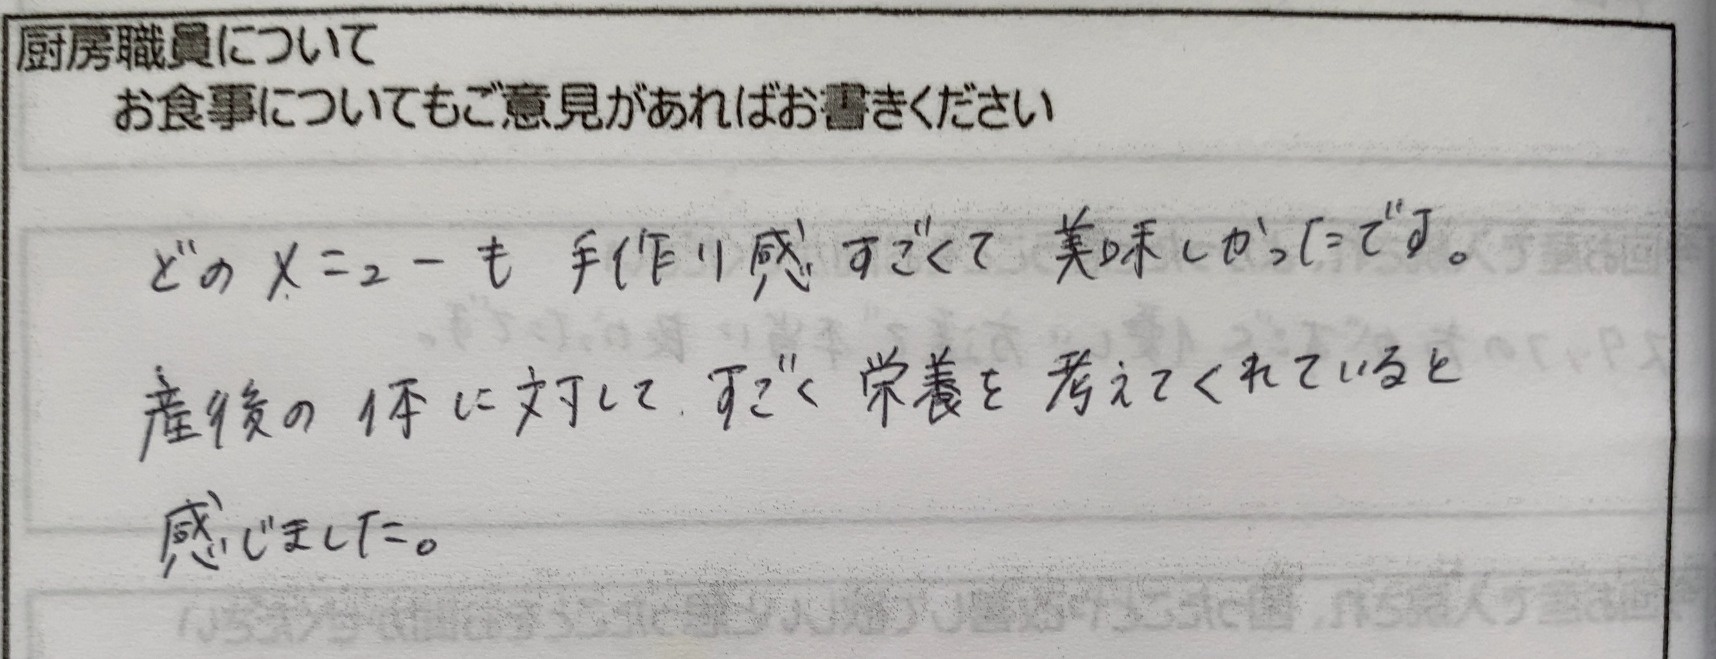 厨房職員について
お食事についてもご意見があればお書きください
どのメニューも手作り感すごくて美味しかったです。
産後の体に対して、すごく栄養を考えてくれていると
感じました。